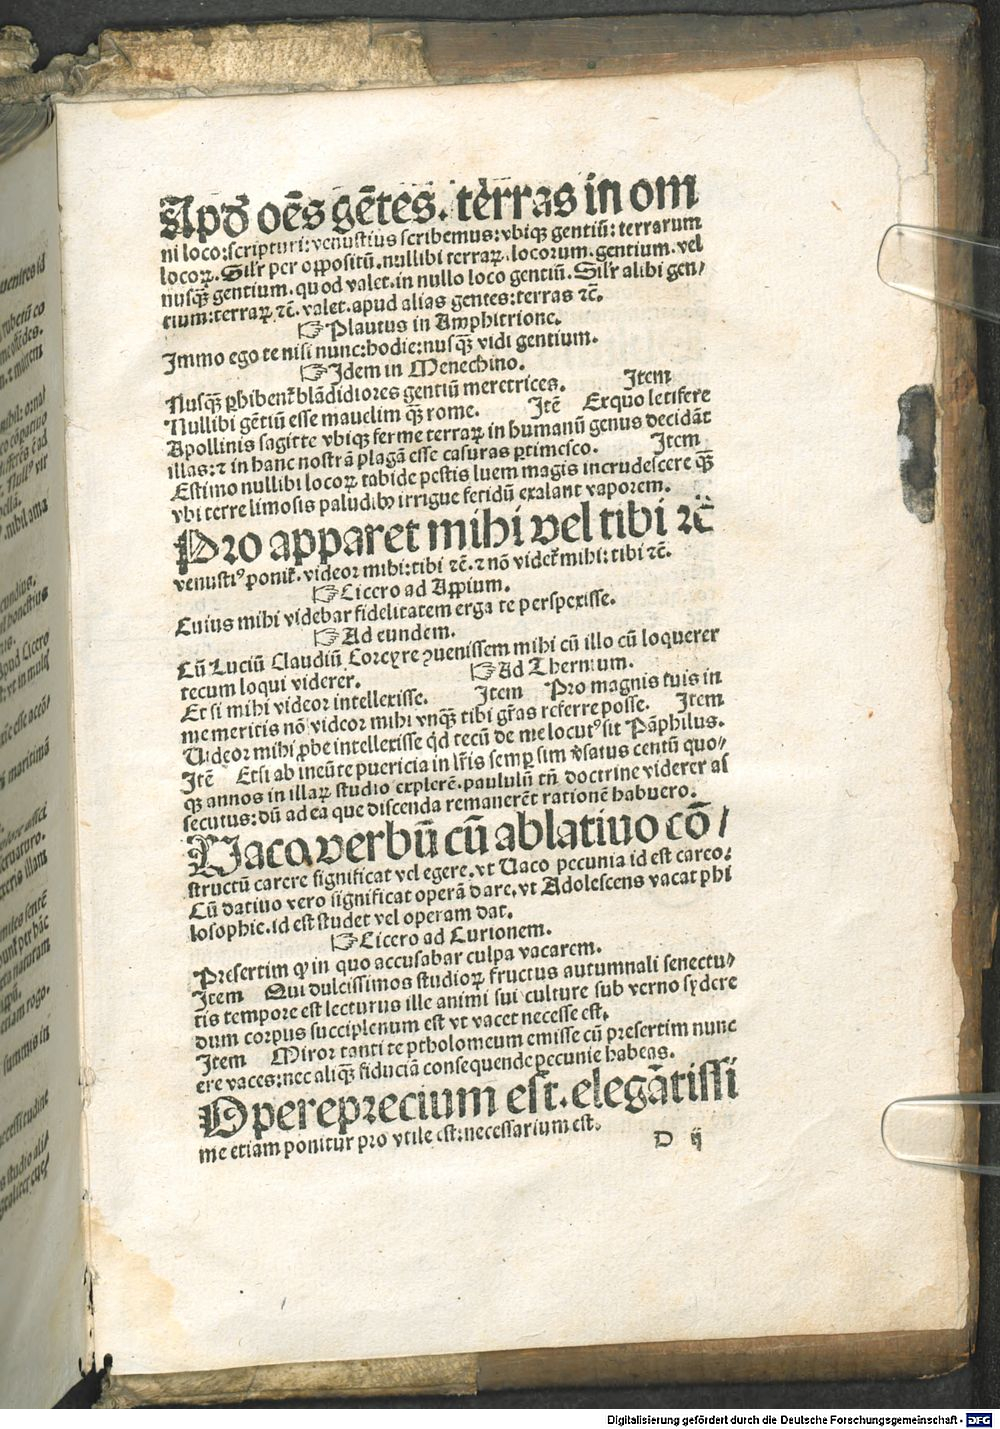 Apð oēs gētes. terras in om
ni loco: scripturi: venustius scribemus: vbiqꝫ gentiū: terrarum
locoꝝ. Sil'r per oppositū. nullibi terraꝝ. locorum. gentium. vel
nusqꝫ̄ gentium. quod valet. in nullo loco gentiū. Sil'r alibi gen/
tium: terraꝝ ⁊c̄. valet. apud alias gentes: terras ⁊c̄.
☞ Plautus in Amphitrione.
Immo ego te nisi nunc: hodie: nusqꝫ̄ vidi gentium.
☞ Idem in Menechino.
Nusqꝫ̄ ꝑhibent᷑ blādidiores gentiū meretrices. Item
Nullibi gētiū esse mauelim qꝫ̄ rome. Itē Ex quo letifere
Apollinis sagitte vbiqꝫ ferme terraꝝ in humanū genus decidāt
illas: ⁊ in hanc nostrā plagā esse casuras ꝑtimesco. Item
Estimo nullibi locoꝝ tabide pestis luem magis incrudescere qꝫ̄
vbi terre limosis paludibꝫ irrigue fetidū exalant vaporem.
Pro apparet mihi vel tibi ⁊c̄
venustiꝰ ponit᷑. videor mihi: tibi ⁊c̄. ⁊ nō videt᷑ mihi: tibi ⁊c̄.
☞ Cicero ad Appium.
Cuius mihi videbar fidelitatem erga te perspexisse.
☞ Ad eundem.
Cū Luciū Claudiū Corcyre ꝯuenissem mihi cū illo cū loquerer
tecum loqui viderer. ☞ Ad Thernium.
Et si mihi videor intellexisse. Item Pro magnis tuis in
me meritis nō videor mihi vnqꝫ̄ tibi gr̄as referre posse. Item
Uideor mihi ꝓbe intellexisse qd̄ tecū de me locutꝰ sit Pāphilus.
Itē Etsi ab ineūte puericia in lr̄is semꝑ sim v̓satus centū quo/
qꝫ annos in illaꝝ studio explerē. paululū tn̄ doctrine viderer as
secutus: dū ad ea que discenda remanerēt rationē habuero.
Uaco. verbū cū ablatiuo cō/
structū carere significat vel egere. vt Uaco pecunia id est careo:
Cū datiuo vero significat operā dare. vt Adolescens vacat phi
losophie. id est studet vel operam dat.
☞ Cicero ad Curionem.
Presertim ꝙ in quo accusabar culpa vacarem.
Item Qui dulcissimos studioꝝ fructus autumnali senectu/
tis tempore est lecturus ille animi sui culture sub verno sydere
dum corpus succiplenum est vt vacet necesse est.
Item Miror tanti te ptholomeum emisse cū presertim nunc
ere vaces: nec aliqꝫ̄ fiduciā consequende pecunie habeas.
Opereprecium est. elegātissi
me etiam ponitur pro vtile est: necessarium est.
D ij
Digitalisierung gefördert durch die Deutsche Forschungsgemeinschaft - DFG